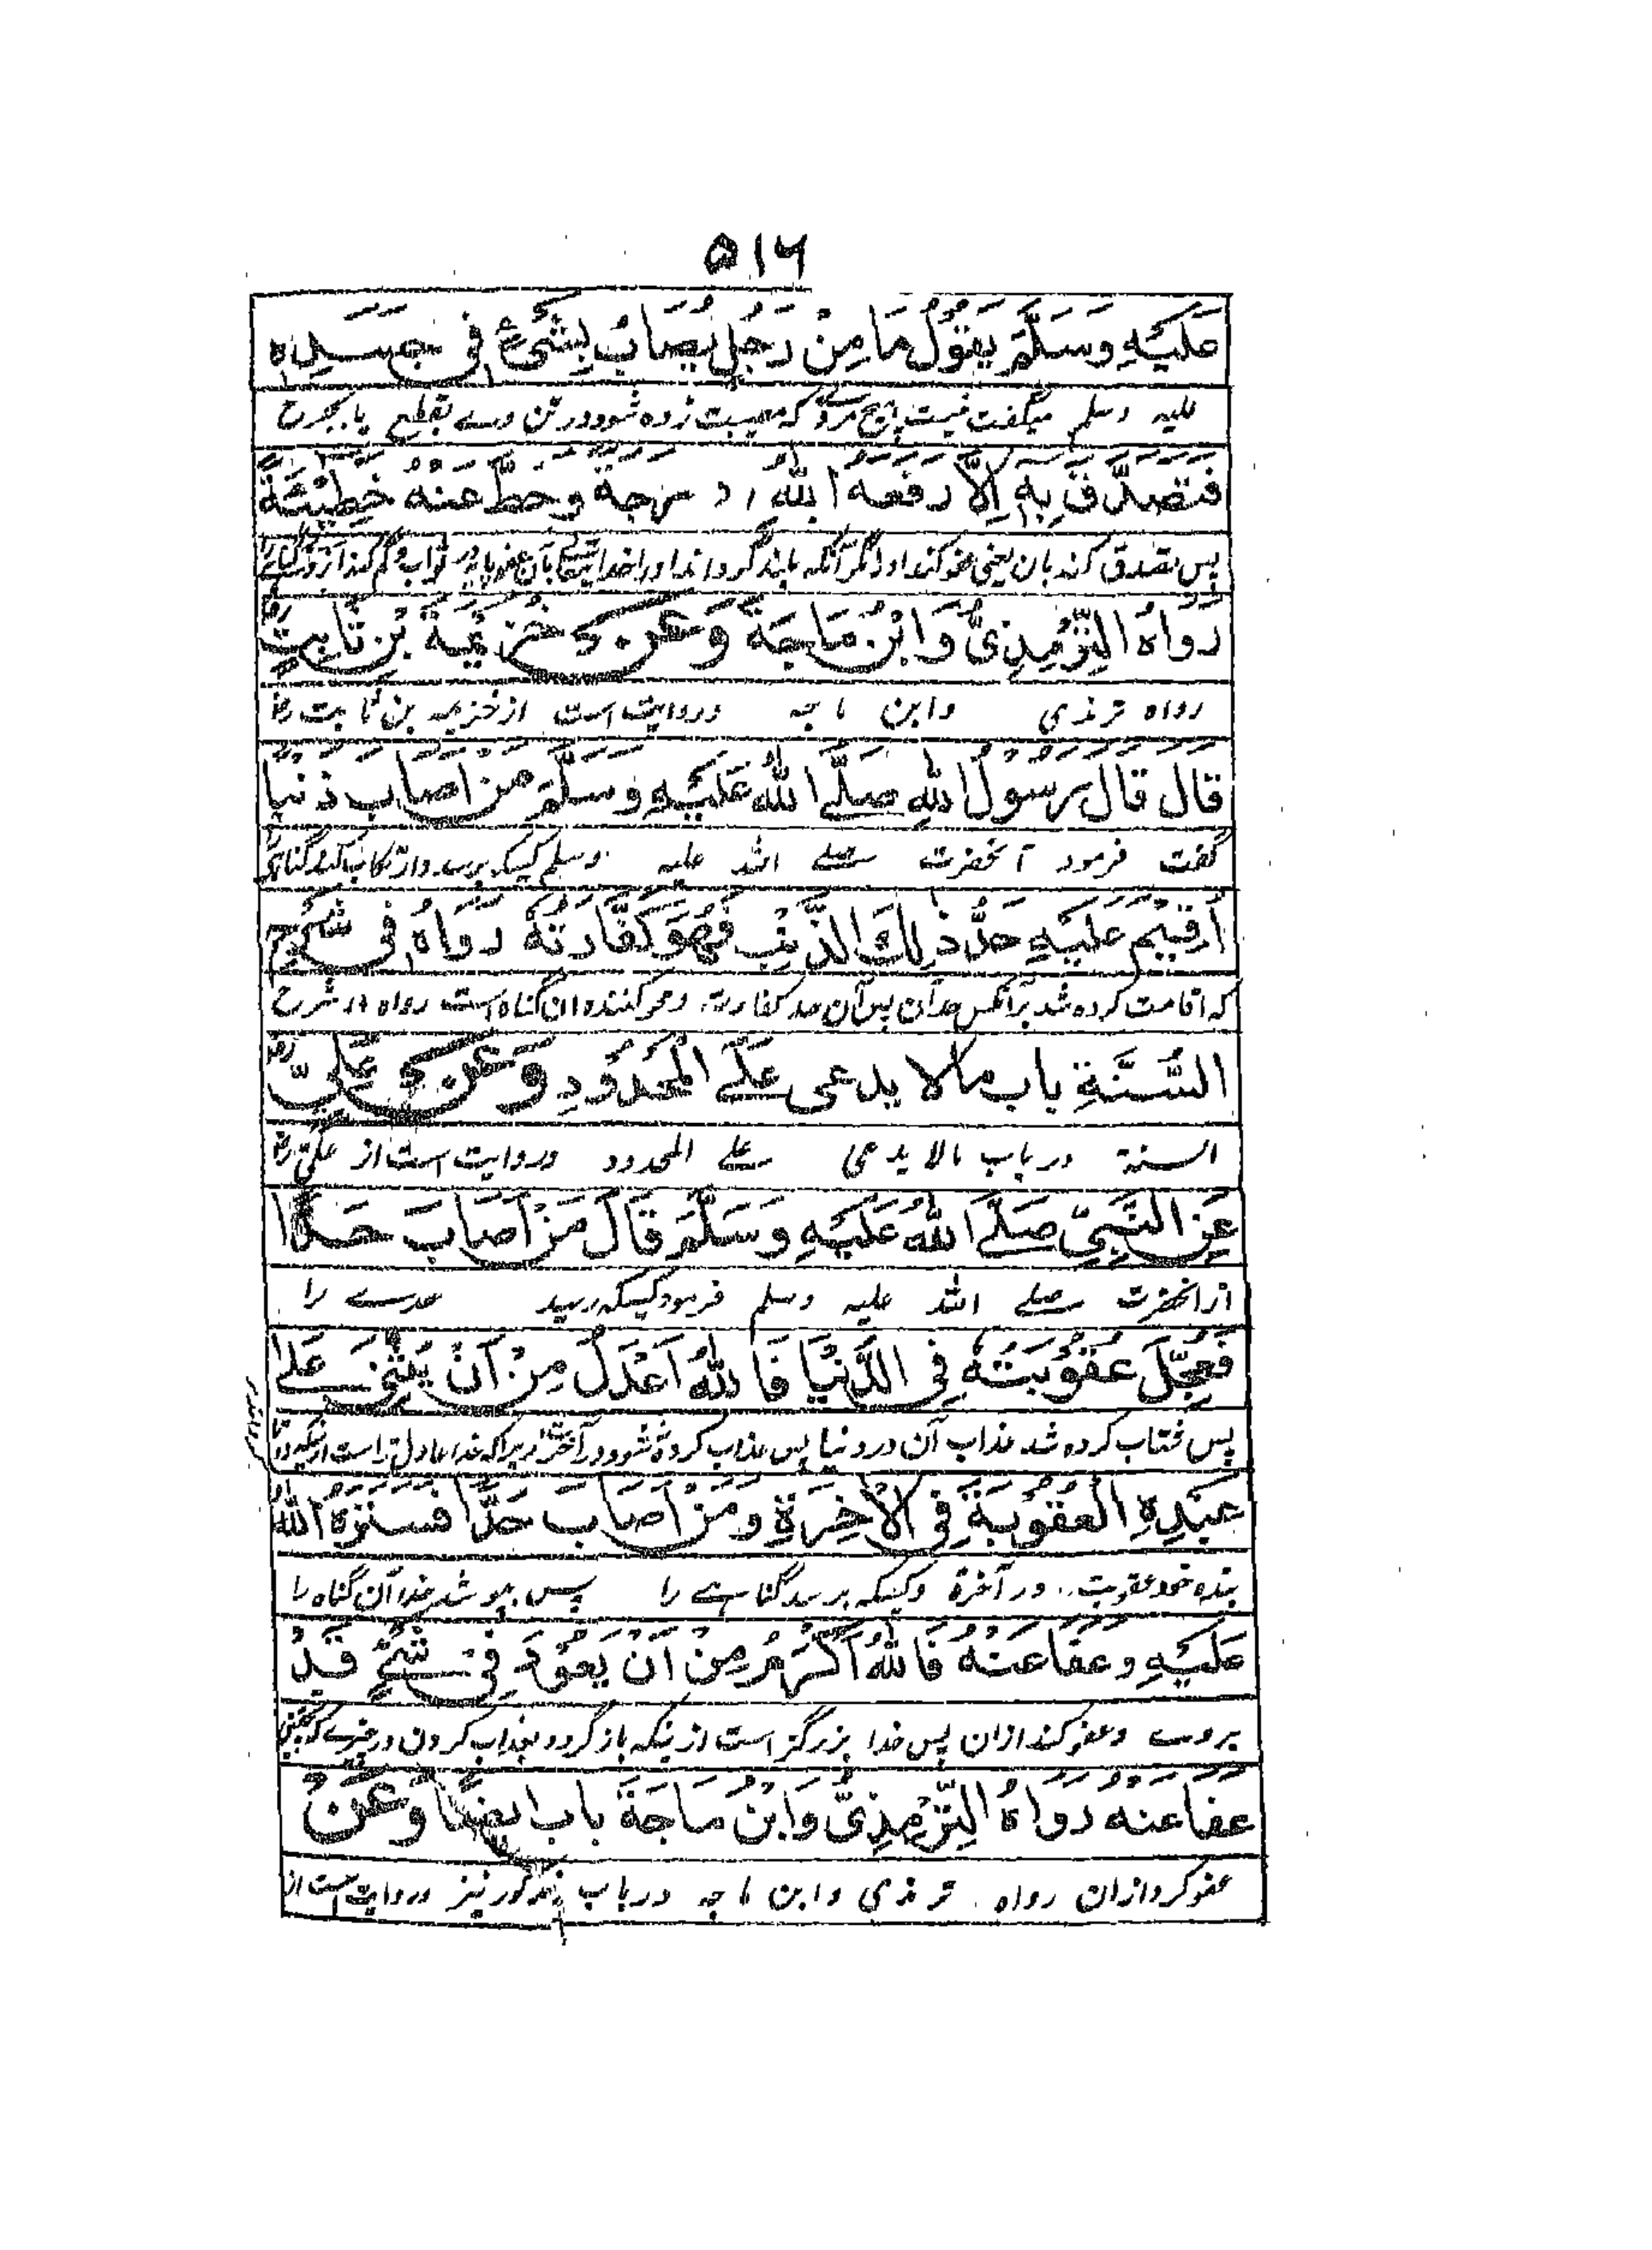 ۵۱۶
عَلَيْهِ وَسَلَّمَ يَقُوْلُ مَا مِنْ رَجُلٍ يُصَابُ بِشَىْءٍ فِى جَسَدِهٖ
علیہ وسلم میگفت نیست ہیچ مردے کہ مصیبت زدہ شود در تن وے بقطع یا بجرح
فَتَصَدَّقَ بِهٖ اِلَّا رَفَعَهُ اللّٰهُ دَرَجَةً وَحَطَّ عَنْهُ خَطِيْئَةً
پس تصدق کند بان یعنی عفو کند او را مگر آنکہ بلند گرداند او را خدا
رَوَاهُ التِّرْمِذِىُّ وَابْنُ مَاجَةَ وَعَنْ خُزَيْمَةَ بْنِ ثَابِتٍ رض
رواہ ترمذی وابن ماجہ وروایت است از خزیمہ بن ثابت رض
قَالَ قَالَ رَسُوْلُ اللّٰهِ صَلَّے اللّٰهُ عَلَيْهِ وَسَلَّمَ مَنْ اَصَابَ ذَنْبًا
گفت فرمود آنحضرت صلے اللہ علیہ وسلم کسیکہ برسد
اُقِيْمَ عَلَيْهِ حَدُّ ذٰلِكَ الذَّنْبِ فَهُوَ كَفَّارَتُهُ رَوَاهُ فِى شَرْحِ
کہ اقامت کردہ شد برآنکس حد آن پس آن حد کفارتہ ومحو کنندہ ان گناہ است رواہ در شرح
السُّنَّةِ باب مالا يدعى عَلَے الْمَحْدُوْدِ وَعَنْ عَلِيٍّ رض
السنۃ در باب مالا یدعی علے المحدود وروایت است از علی رض
عَنِ النَّبِىِّ صَلَّے اللّٰهُ عَلَيْهِ وَسَلَّمَ قَالَ مَنْ اَصَابَ حَدًّا
از انحضرت صلے اللہ علیہ وسلم فرمود کسیکہ رسید حدے را
فَعُجِّلَ عُقُوْبَتُهُ فِى الدُّنْيَا فَاللّٰهُ اَعْدَلُ مِنْ اَنْ يُثَنِّىَ عَلٰى
پس شتاب کردہ شد عذاب آن در دنیا پس عذاب کردہ نشود در آخرت زیراکہ خدا عادل تر است
عَبْدِهِ الْعُقُوْبَةَ فِى الْاٰخِرَةِ وَمَنْ اَصَابَ حَدًّا فَسَتَرَهُ اللّٰهُ
بندہ خود عقوبت در آخرۃ وکسیکہ برسد گناہے را پس بپوشد خدا آن گناہ را
عَلَيْهِ وَعَفَا عَنْهُ فَاللّٰهُ اَكْرَمُ مِنْ اَنْ يَعُوْدَ فِى شَىْءٍ قَدْ
بروے وعفو کند ازان پس خدا بزرگتر است از ینکہ باز گردد بعذاب کردن در چیزے کہ
عفا عنه رَوَاهُ التِّرْمِذِىُّ وَابْنُ مَاجَةَ باب ايضًا وَعَنْ
عفو کرد ازان رواہ ترمذی وابن ماجہ در باب مذکور نیز وروایت است از